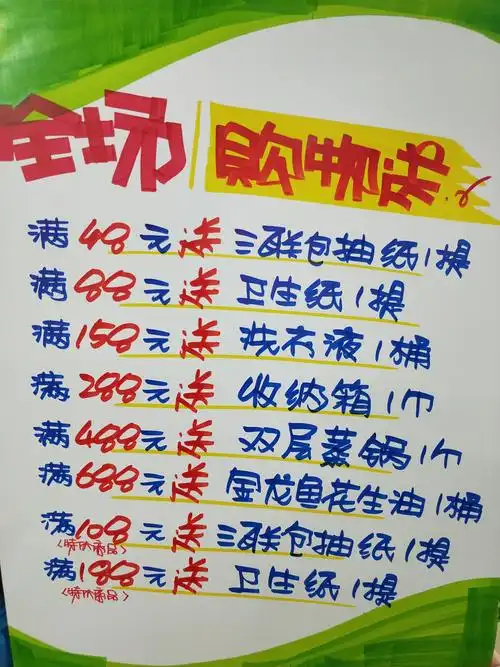 全场 购物送
满48元送 三联包抽纸1提
满88元送 卫生纸1提
满158元送 洗衣液1桶
满288元送 收纳箱1个
满488元送 双层蒸锅1个
满688元送 金龙鱼花生油1桶
满108元送 三联包抽纸1提
满188元送 卫生纸1提